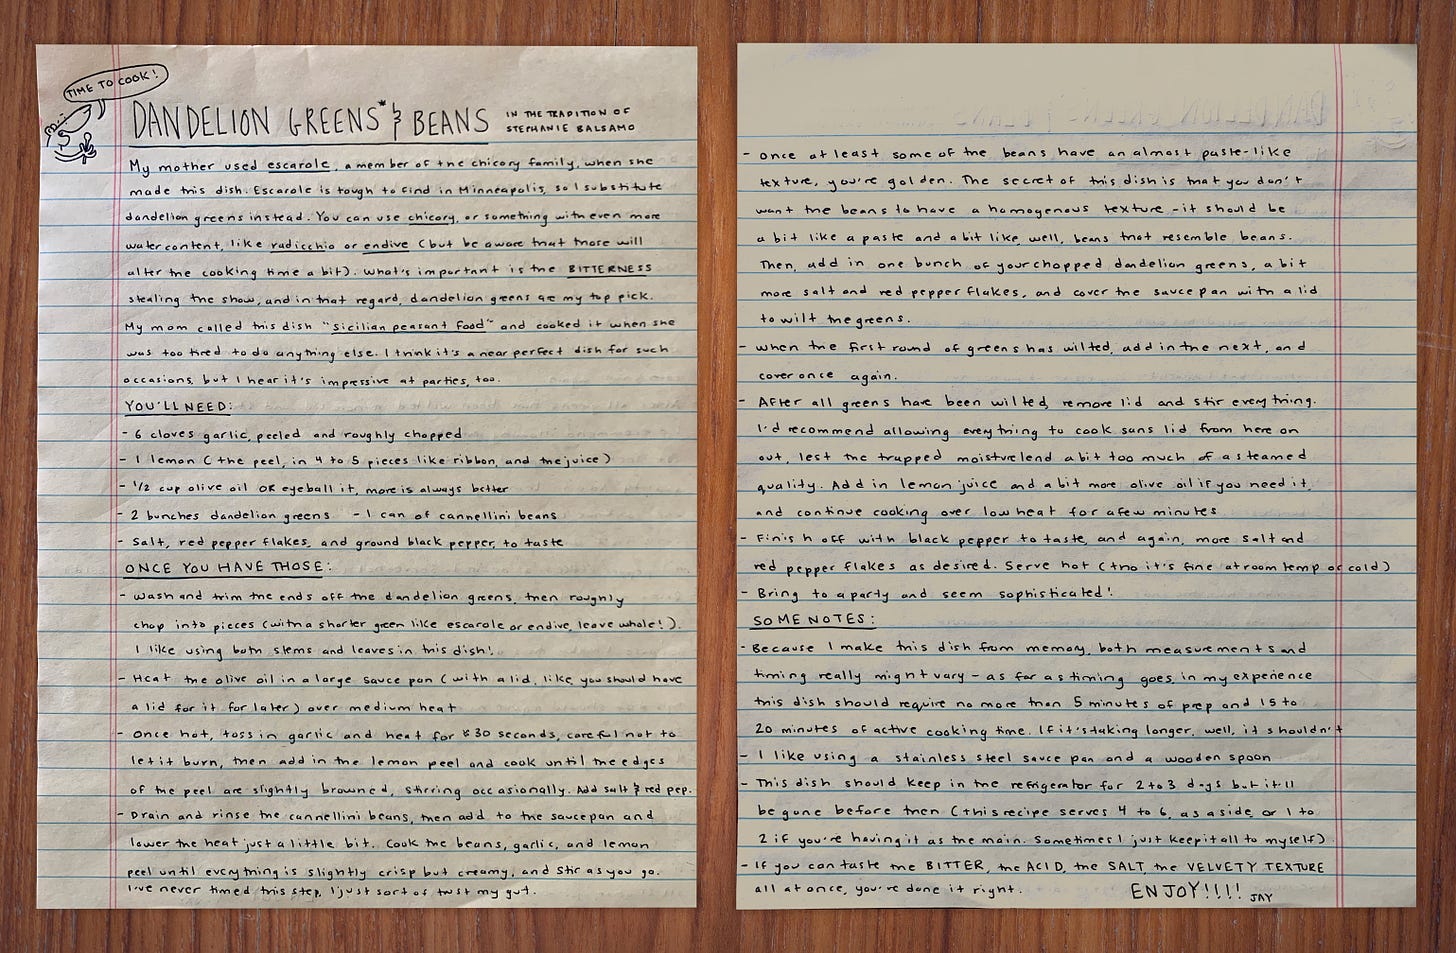 TIME TO COOK!
DANDELION GREENS* & BEANS IN THE TRADITION OF
STEPHANIE BALSAMO
My mother used escarole, a member of the chicory family, when she
made this dish. Escarole is tough to find in Minneapolis, so I substitute
dandelion greens instead. You can use chicory, or something with even more
water content, like radicchio or endive (but be aware that those will
alter the cooking time a bit). What's important is the BITTERNESS
stealing the show, and in that regard, dandelion greens are my top pick.
My mom called this dish "Sicilian peasant food" and cooked it when she
was too tired to do anything else. I think it's a near perfect dish for such
occasions, but I hear it's impressive at parties, too.
YOU'LL NEED:
- 6 cloves garlic, peeled and roughly chopped
- 1 lemon (the peel, in 4 to 5 pieces like ribbon, and the juice)
- 1/2 cup olive oil OR eyeball it, more is always better
- 2 bunches dandelion greens - 1 can of cannellini beans
- Salt, red pepper flakes, and ground black pepper, to taste
ONCE YOU HAVE THOSE:
- Wash and trim the ends off the dandelion greens, then roughly
chop into pieces (with a shorter green like escarole or endive, leave whole!).
I like using both stems and leaves in this dish!
- Heat the olive oil in a large sauce pan (with a lid, like, you should have
a lid for it for later) over medium heat
- Once hot, toss in garlic and heat for 30 seconds, careful not to
let it burn, then add in the lemon peel and cook until the edges
of the peel are slightly browned, stirring occasionally. Add salt & red pep.
- Drain and rinse the cannellini beans, then add to the saucepan and
lower the heat just a little bit. Cook the beans, garlic, and lemon
peel until everything is slightly crisp but creamy, and stir as you go.
I've never timed this step, I just sort of trust my gut.
- Once at least some of the beans have an almost paste-like
texture, you're golden. The secret of this dish is that you don't
want the beans to have a homogenous texture - it should be
a bit like a paste and a bit like, well, beans that resemble beans.
Then, add in one bunch of your chopped dandelion greens, a bit
more salt and red pepper flakes, and cover the saucepan with a lid
to wilt the greens.
- When the first round of greens has wilted, add in the next, and
cover once again.
- After all greens have been wilted, remove lid and stir everything.
I'd recommend allowing everything to cook sans lid from here on
out, lest the trapped moisture lend a bit too much of a steamed
quality. Add in lemon juice and a bit more olive oil if you need it,
and continue cooking over low heat for a few minutes
- Finish off with black pepper to taste, and again, more salt and
red pepper flakes as desired. Serve hot (tho it's fine at room temp or cold)
- Bring to a party and seem sophisticated!
SOME NOTES:
- Because I make this dish from memory, both measurements and
timing really might vary - as far as timing goes, in my experience
this dish should require no more than 5 minutes of prep and 15 to
20 minutes of active cooking time. If it's taking longer, well, it shouldn't
- I like using a stainless steel sauce pan and a wooden spoon
- This dish should keep in the refrigerator for 2 to 3 days but it'll
be gone before then (this recipe serves 4 to 6, as a side, or 1 to
2 if you're having it as the main. Sometimes I just keep it all to myself)
- If you can taste the BITTER, the ACID, the SALT, the VELVETY TEXTURE
all at once, you've done it right. ENJOY!!!! JAY